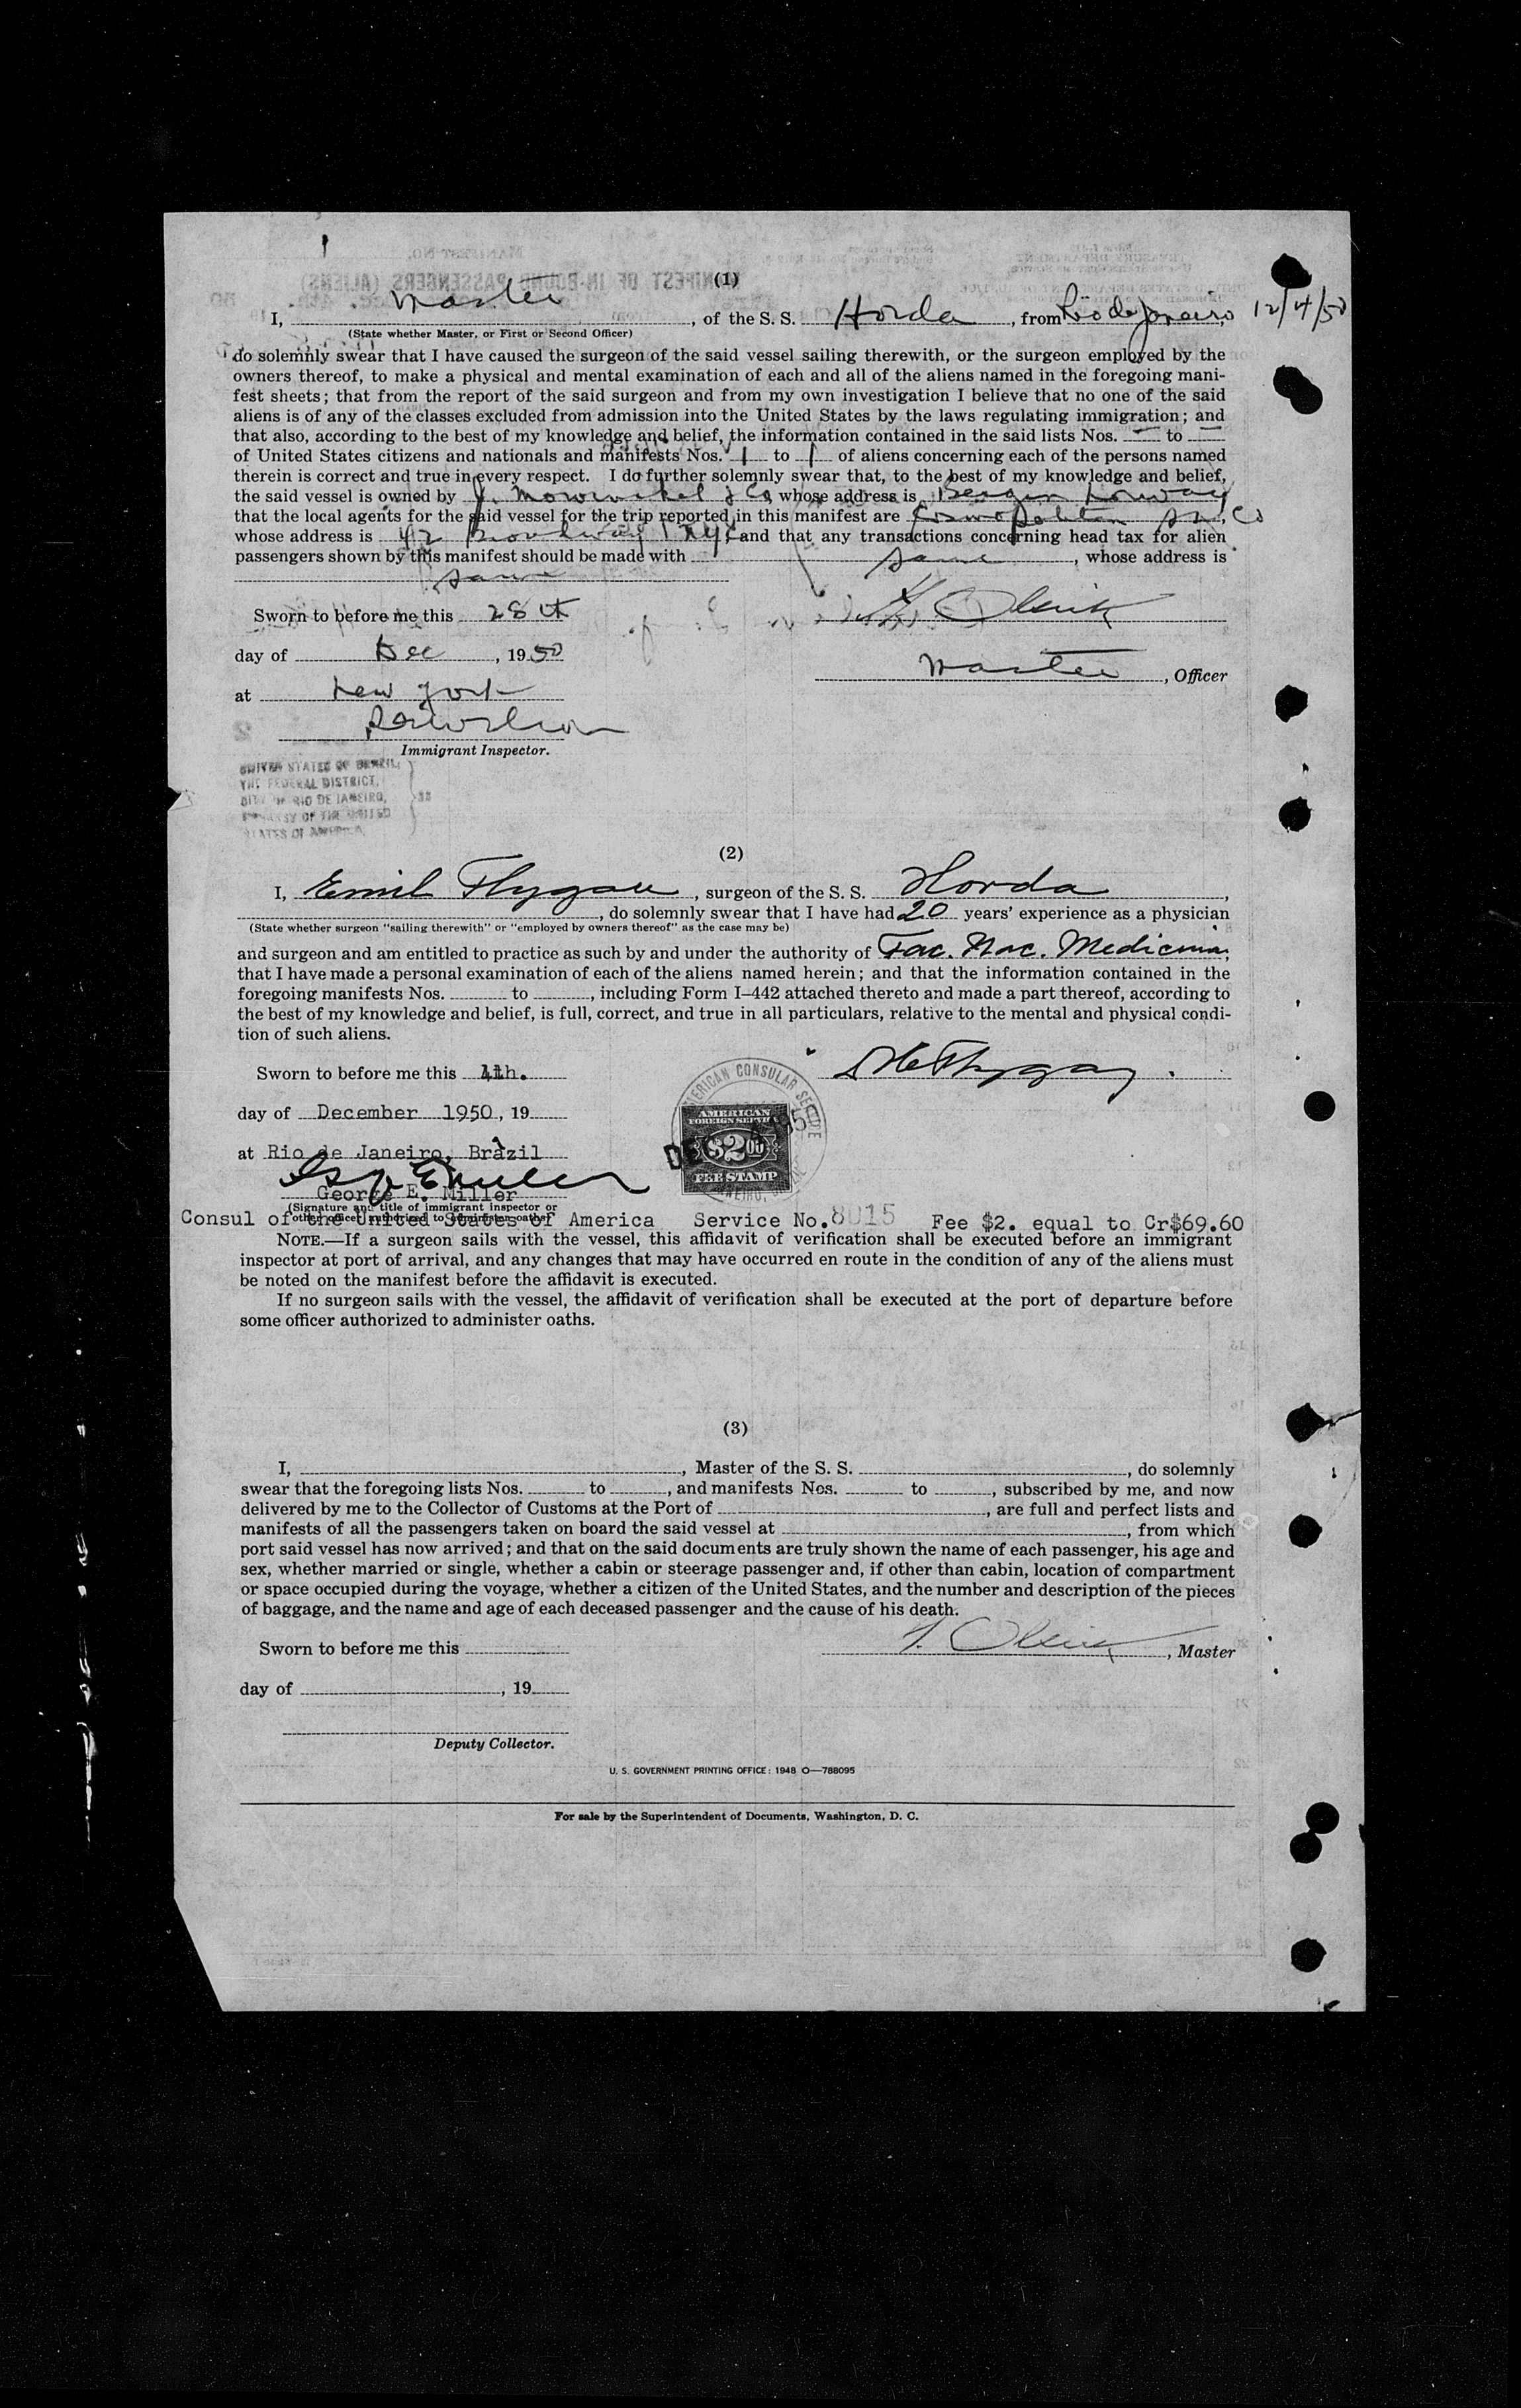 (1)
I, Master, of the S. S. Horda, from Rio de Janeiro, 12/4/50
(State whether Master, or First or Second Officer)
do solemnly swear that I have caused the surgeon of the said vessel sailing therewith, or the surgeon employed by the
owners thereof, to make a physical and mental examination of each and all of the aliens named in the foregoing mani-
fest sheets; that from the report of the said surgeon and from my own investigation I believe that no one of the said
aliens is of any of the classes excluded from admission into the United States by the laws regulating immigration; and
that also, according to the best of my knowledge and belief, the information contained in the said lists Nos. — to —
of United States citizens and nationals and manifests Nos. 1 to 1 of aliens concerning each of the persons named
therein is correct and true in every respect. I do further solemnly swear that, to the best of my knowledge and belief,
the said vessel is owned by J. Mowinckel & Co, whose address is Bergen Norway
that the local agents for the said vessel for the trip reported in this manifest are Cosmopolitan Co
whose address is 42 Broadway NYC and that any transactions concerning head tax for alien
passengers shown by this manifest should be made with same, whose address is
same
Sworn to before me this 28th
day of Dec, 1950
Master, Officer
at New York
Immigrant Inspector.
UNITED STATES OF BRAZIL,
THE FEDERAL DISTRICT,
CITY OF RIO DE JANEIRO, SS
EMBASSY OF THE UNITED
STATES OF AMERICA
(2)
I, Emil, surgeon of the S. S. Horda,
, do solemnly swear that I have had 20 years' experience as a physician
(State whether surgeon "sailing therewith" or "employed by owners thereof" as the case may be)
and surgeon and am entitled to practice as such by and under the authority of Fac. Nac. Medicina;
that I have made a personal examination of each of the aliens named herein; and that the information contained in the
foregoing manifests Nos. to , including Form I-442 attached thereto and made a part thereof, according to
the best of my knowledge and belief, is full, correct, and true in all particulars, relative to the mental and physical condi-
tion of such aliens.
Sworn to before me this 4th.
day of December 1950, 19
AMERICAN CONSULAR SERVICE
AMERICAN
FOREIGN SERVICE
$2.00
FEE STAMP
at Rio de Janeiro, Brazil
George E. Miller
(Signature and title of immigrant inspector or
other officer authorized to administer oaths)
Consul of the United States of America Service No. 8015 Fee $2. equal to Cr$69.60
NOTE.—If a surgeon sails with the vessel, this affidavit of verification shall be executed before an immigrant
inspector at port of arrival, and any changes that may have occurred en route in the condition of any of the aliens must
be noted on the manifest before the affidavit is executed.
If no surgeon sails with the vessel, the affidavit of verification shall be executed at the port of departure before
some officer authorized to administer oaths.
(3)
I, , Master of the S. S. , do solemnly
swear that the foregoing lists Nos. to , and manifests Nos. to , subscribed by me, and now
delivered by me to the Collector of Customs at the Port of , are full and perfect lists and
manifests of all the passengers taken on board the said vessel at , from which
port said vessel has now arrived; and that on the said documents are truly shown the name of each passenger, his age and
sex, whether married or single, whether a cabin or steerage passenger and, if other than cabin, location of compartment
or space occupied during the voyage, whether a citizen of the United States, and the number and description of the pieces
of baggage, and the name and age of each deceased passenger and the cause of his death.
Sworn to before me this
, Master
day of , 19
Deputy Collector.
U. S. GOVERNMENT PRINTING OFFICE: 1948 O—788095
For sale by the Superintendent of Documents, Washington, D. C.